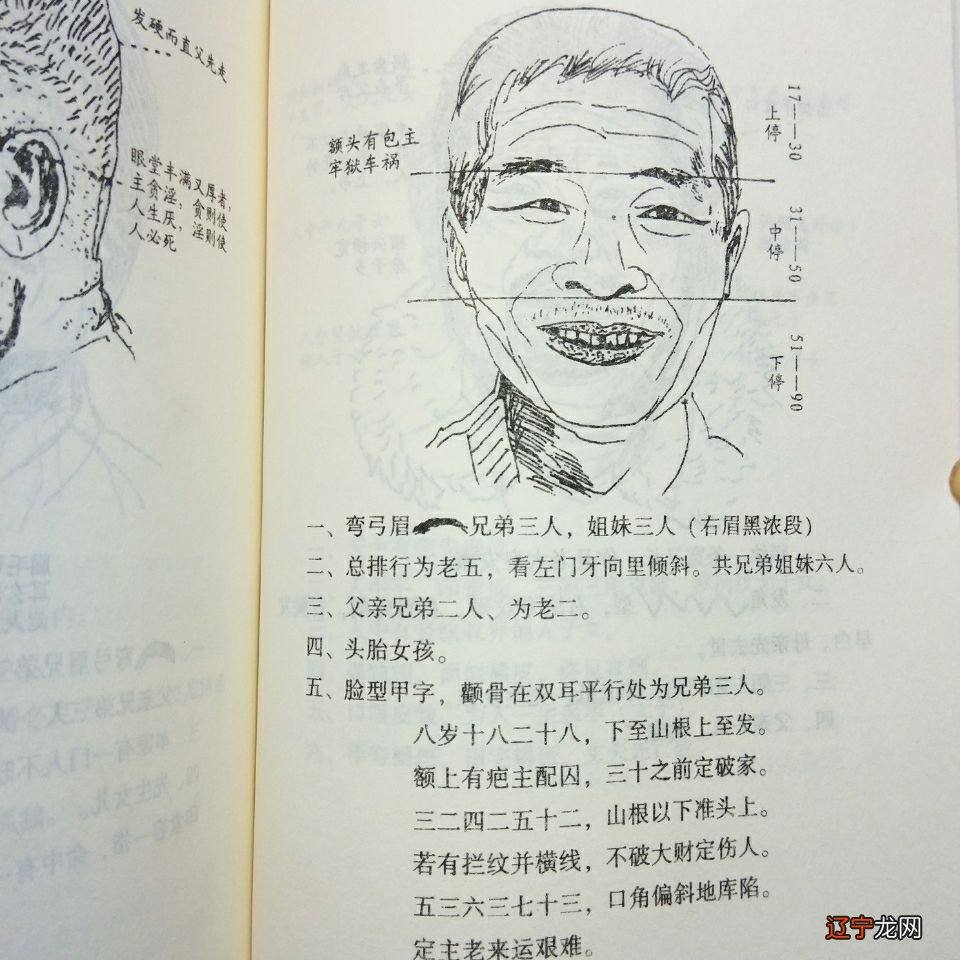 发硬而直父先走
眼堂丰满又厚者，
主贪淫，贪则使
人生厌，淫则使
人必死
额头有包主
牢狱车祸
17——30
上停
31——50
中停
51——90
下停
一、弯弓眉 兄弟三人，姐妹三人（右眉黑浓段）
二、总排行为老五，看左门牙向里倾斜。共兄弟姐妹六人。
三、父亲兄弟二人、为老二。
四、头胎女孩。
五、脸型甲字，颧骨在双耳平行处为兄弟三人。
八岁十八二十八，下至山根上至发。
额上有疤主配囚，三十之前定破家。
三二四二五十二，山根以下准头上。
若有拦纹并横线，不破大财定伤人。
五三六三七十三，口角偏斜地库陷。
定主老来运艰难。
辽宁龙网